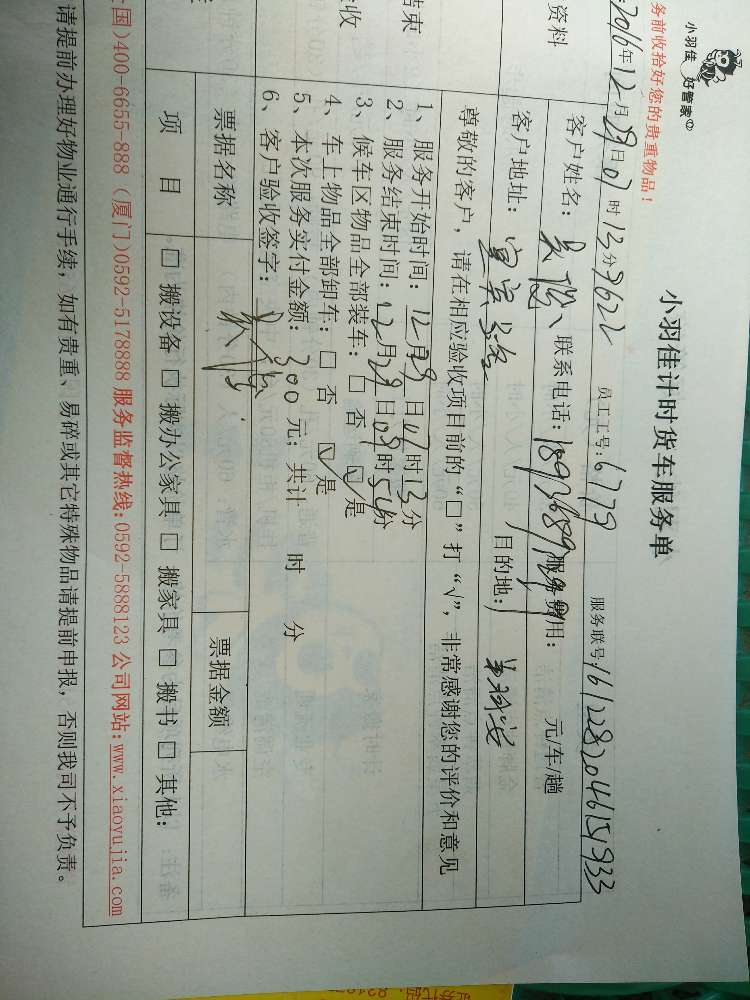 小羽佳 好管家
小羽佳计时货车服务单
务前收拾好您的贵重物品！
2016年12月29日07时13分 员工工号：6779 服务联号：1612282046151933
资料
客户姓名： 联系电话： 服务费用： 元/车/趟
客户地址： 目的地：
尊敬的客户，请在相应验收项目前的“□”打“√”，非常感谢您的评价和意见
结束
验收
1、服务开始时间：12月29日07时13分
2、服务结束时间：12月29日09时54分
3、候车区物品全部装车：□ 否 ☑是
4、车上物品全部卸车：□ 否 ☑是
5、本次服务实付金额：300元；共计 时 分
6、客户验收签字：
票据名称 票据金额
项 目 □ 搬设备 □ 搬办公家具 □ 搬家具 □ 搬书 □ 其他：
国)400-6655-888（厦门)0592-5178888 服务监督热线:0592-5888123 公司网站:www.xiaoyujia.com
请提前办理好物业通行手续；如有贵重、易碎或其它特殊物品请提前申报，否则我司不予负责。